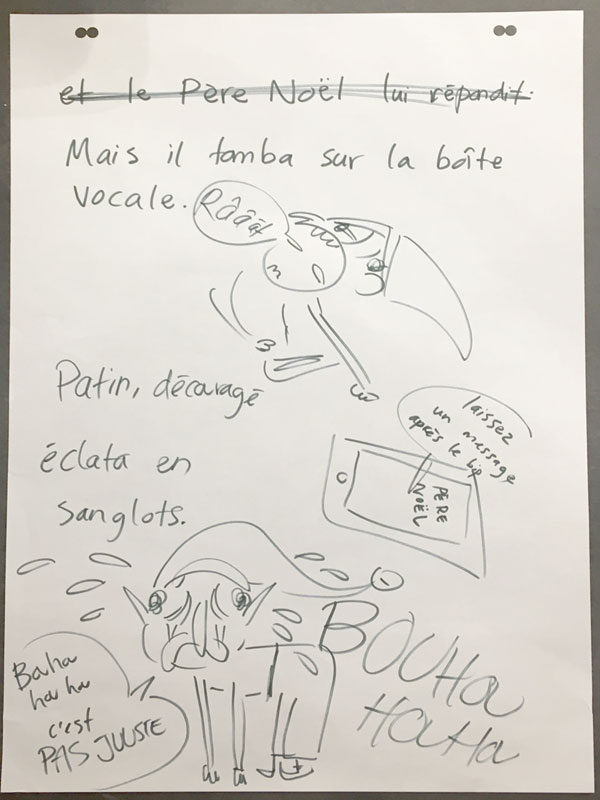 et le Père Noël lui répondit.
Mais il tomba sur la boîte
vocale.
Râââât
Patin, décaragé
éclata en
sanglots.
laissez
un message
après le bip
PÈRE
NOËL
BOUHa
HaHa
Baha
ha ha
c'est
PAS JUUSTE